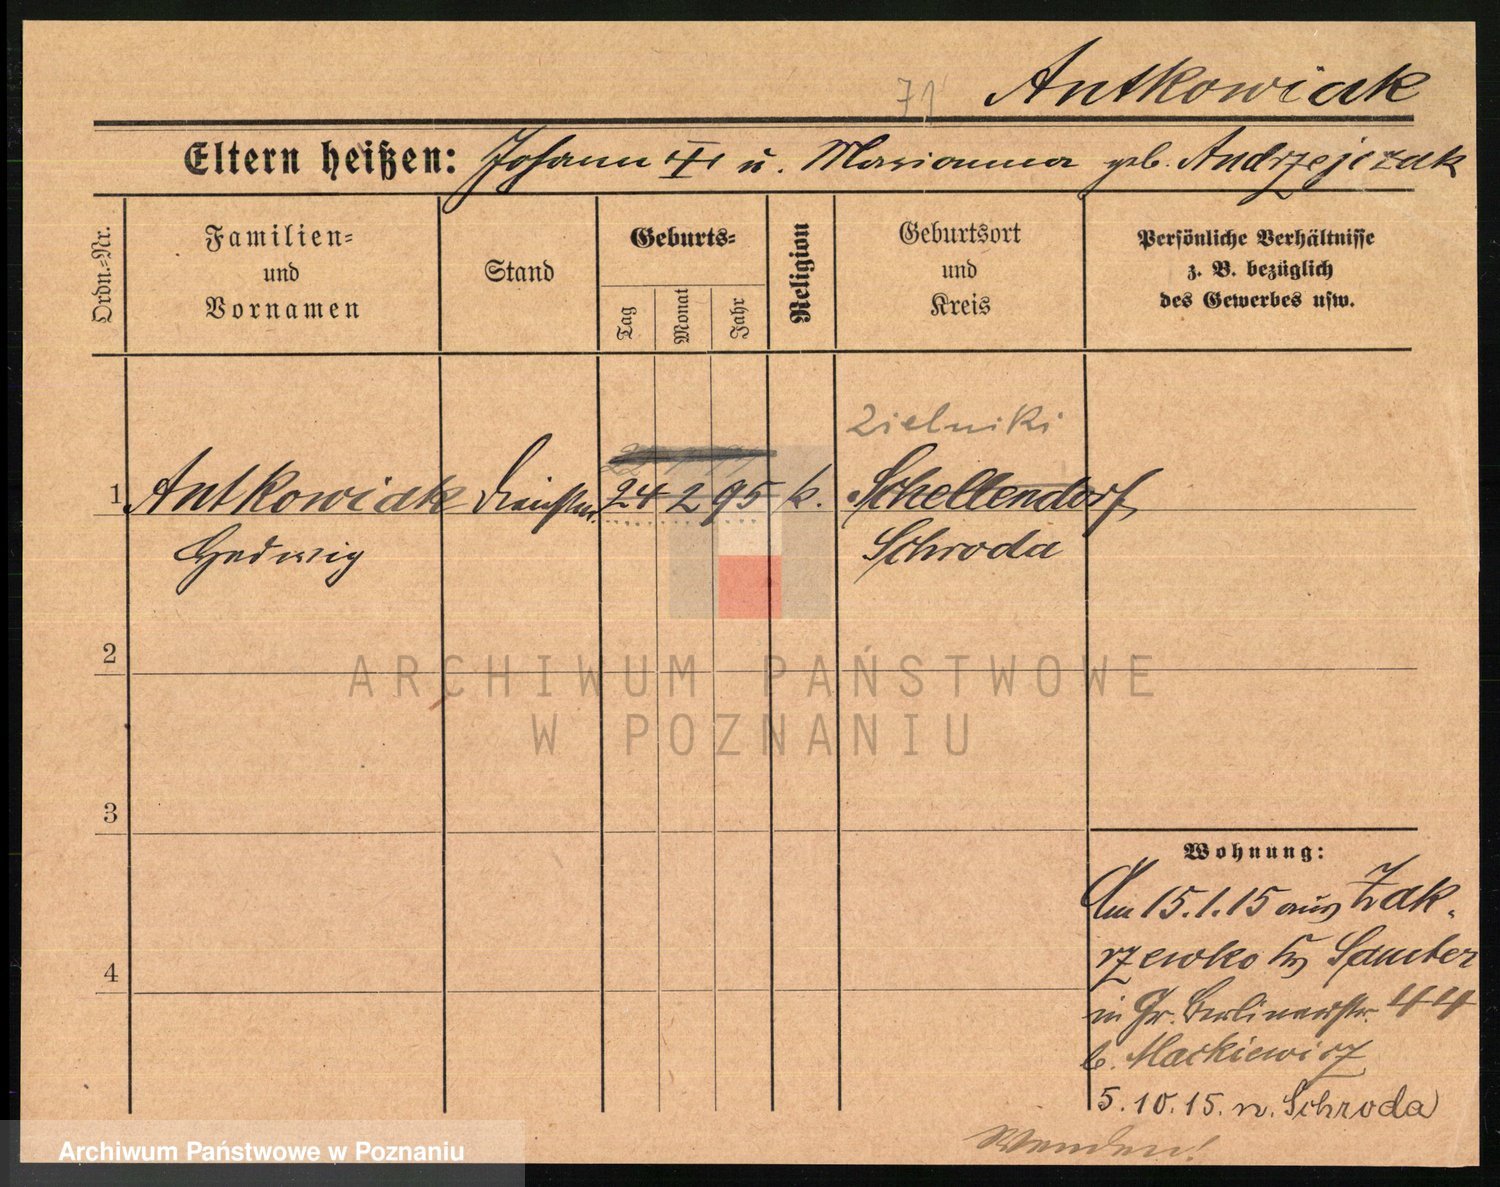 71
Antkowiak
Eltern heißen: Johann u. Marianna geb. Andrzejczak
Ordn.-Nr.
Familien-
und
Vornamen
Stand
Geburts-
Tag
Monat
Jahr
Religion
Geburtsort
und
Kreis
Persönliche Verhältnisse
z. B. bezüglich
des Gewerbes usw.
Zielniki
1 Antkowiak 24 2 95 k. Schellendorf
Hedwig Schroda
2
3
4
Wohnung:
Am 15.1.15 aus Zak-
rzewko Kr Samter
in Gr. Berlinerstr. 44
b. Mackiewicz
5.10.15. n. Schroda
Wenden!
ARCHIWUM PAŃSTWOWE
W POZNANIU
Archiwum Państwowe w Poznaniu